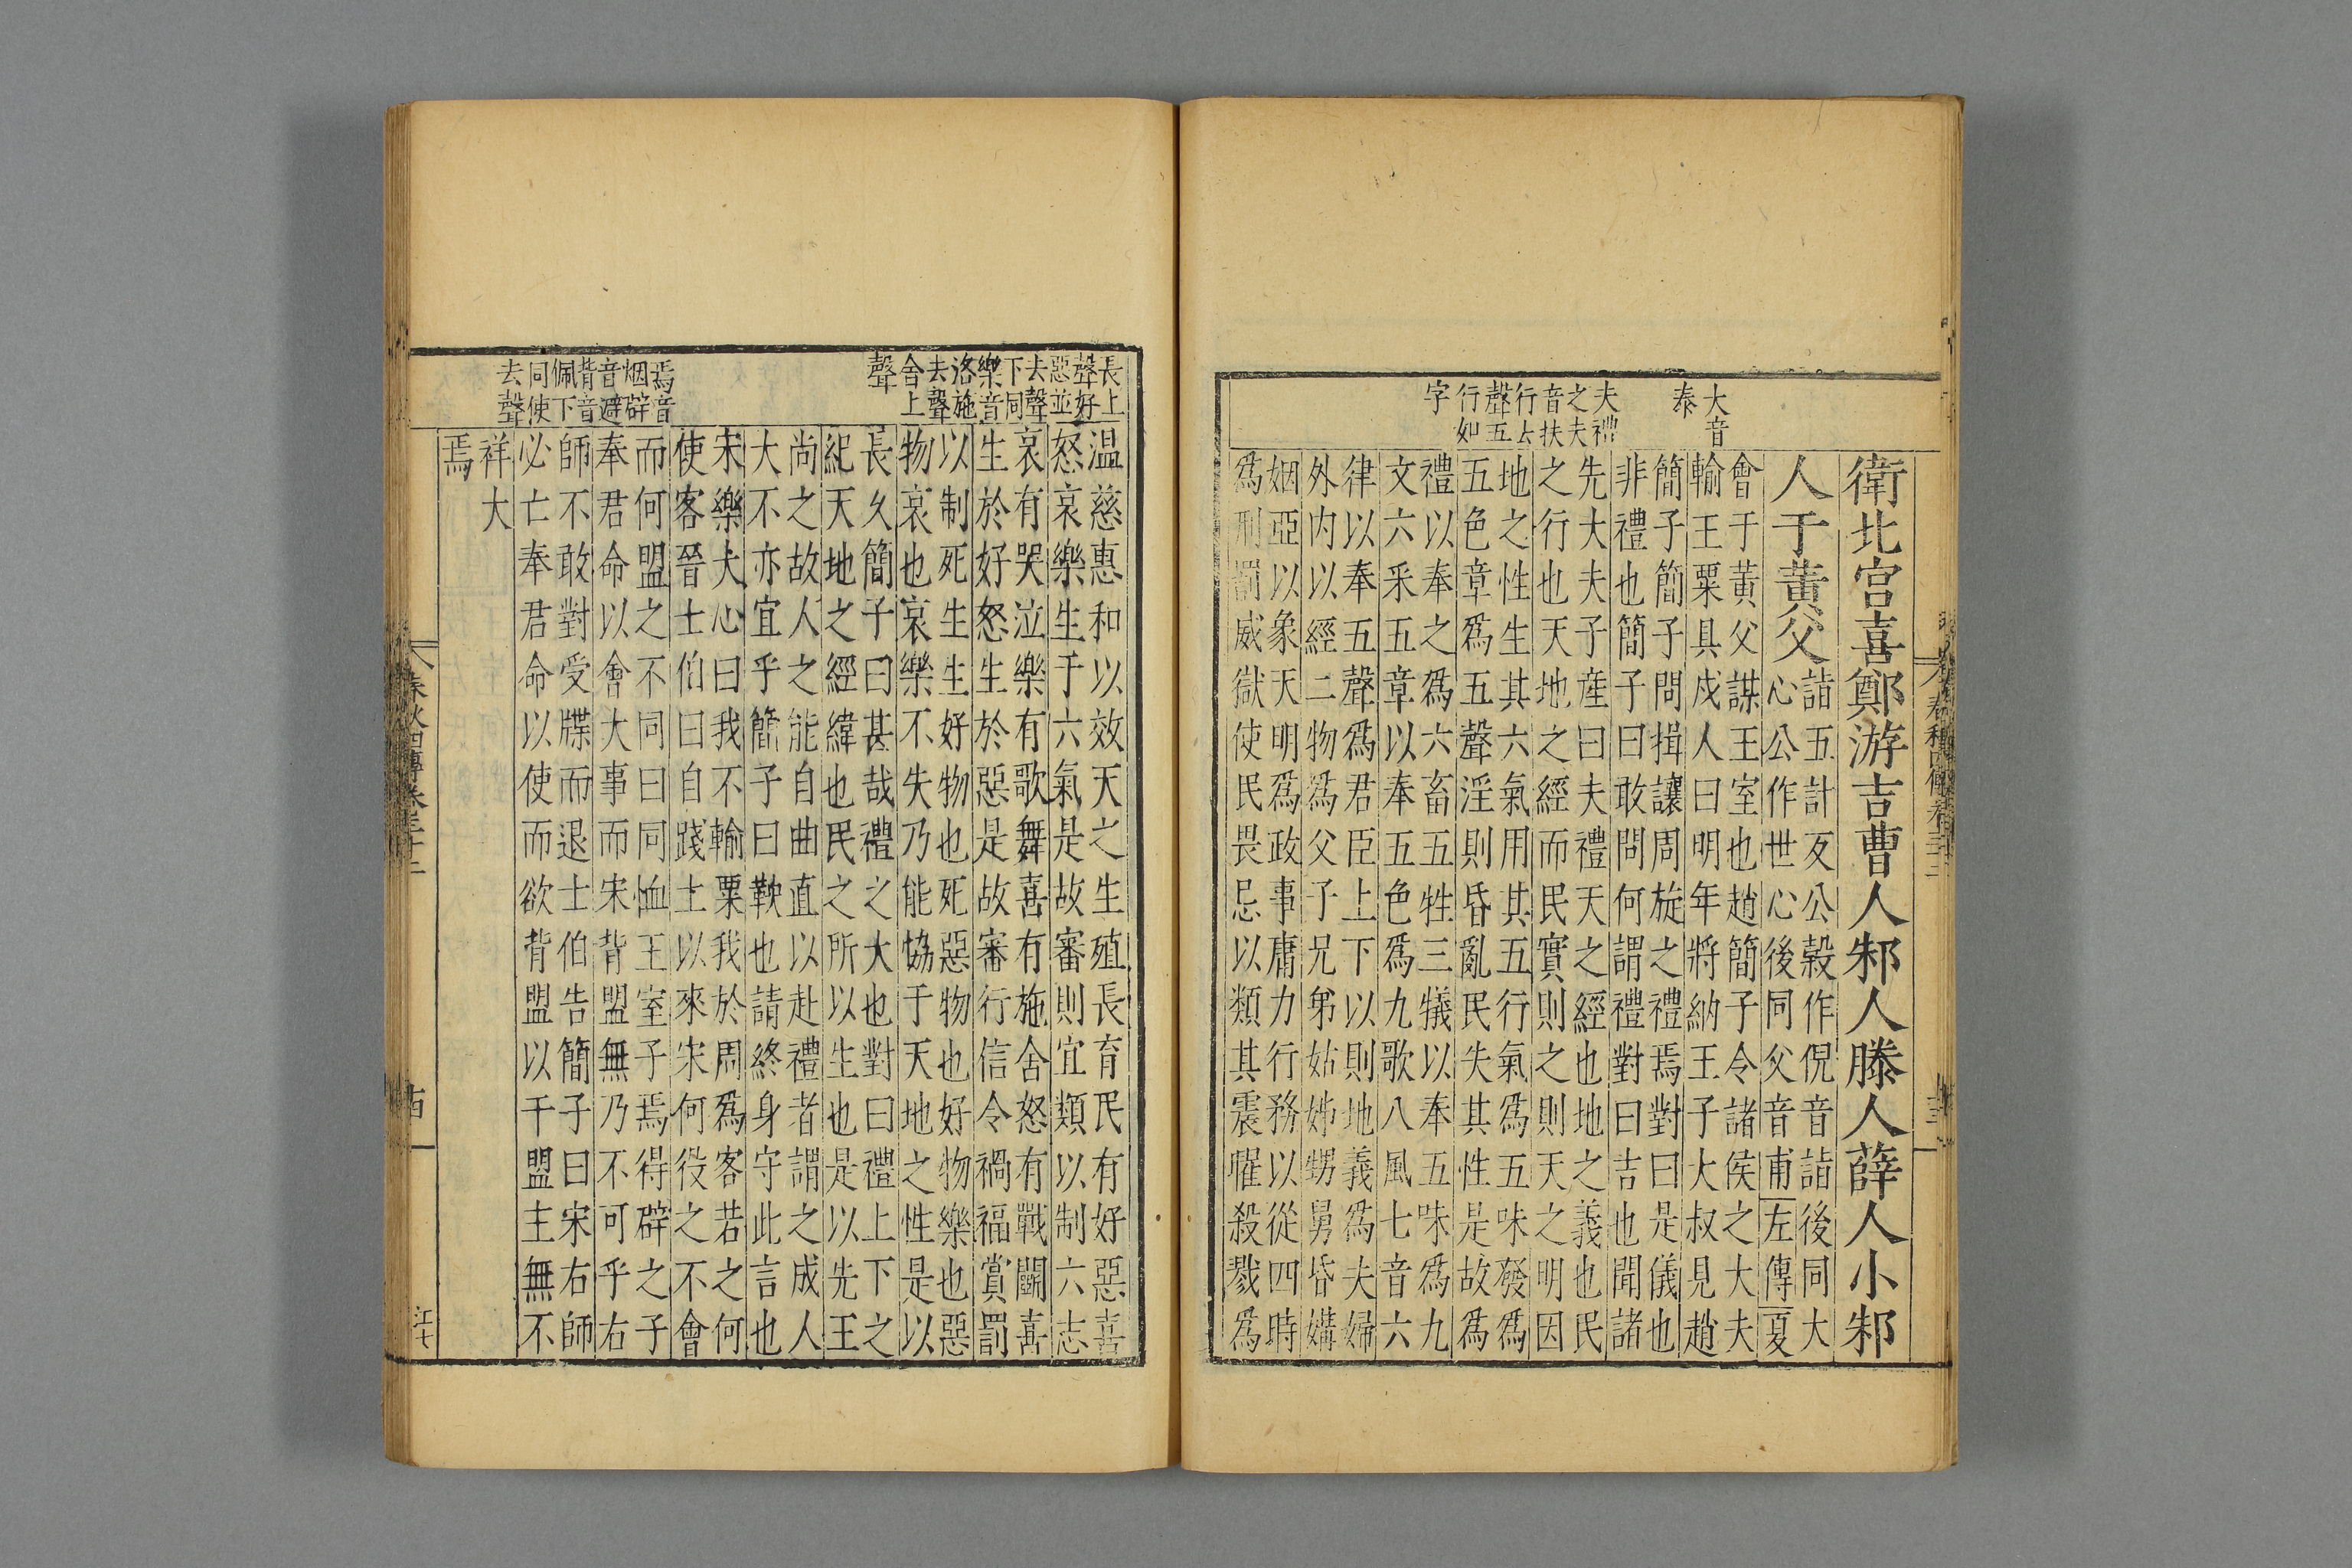 大音
泰
夫禮
之夫
音扶
行去
聲五
行如
字
衛北宫喜鄭游吉曹人邾人滕人薛人小邾
人于黃父
詣五計反公穀作倪音詣後同大
心公作世心後同父音甫左傳夏
會于黃父謀王室也趙簡子令諸侯之大夫
輸王粟具戍人曰明年將納王子大叔見趙
簡子簡子問揖讓周旋之禮焉對曰是儀也
非禮也簡子曰敢問何謂禮對曰吉也聞諸
先大夫子産曰夫禮天之經也地之義也民
之行也天地之經而民實則之則天之明因
地之性生其六氣用其五行氣爲五味發爲
五色章爲五聲淫則昏亂民失其性是故爲
禮以奉之爲六畜五牲三犧以奉五味爲九
文六采五章以奉五色爲九歌八風七音六
律以奉五聲爲君臣上下以則地義爲夫婦
外内以經二物爲父子兄弟姑姊甥舅昏媾
姻亞以象天明爲政事庸力行務以從四時
爲刑罰威獄使民畏忌以類其震曜殺戮爲
長上
聲好
惡並
去聲
下同
樂音
洛施
去聲
舍上
聲
焉音
烟辟
音避
背音
佩下
同使
去聲
温慈惠和以效天之生殖長育民有好惡喜
怒哀樂生于六氣是故審則宜類以制六志
哀有哭泣樂有歌舞喜有施舍怒有戰鬭喜
生於好怒生於惡是故審行信令禍福賞罰
以制死生生好物也死惡物也好物樂也惡
物哀也哀樂不失乃能協于天地之性是以
長久簡子曰甚哉禮之大也對曰禮上下之
紀天地之經緯也民之所以生也是以先王
尚之故人之能自曲直以赴禮者謂之成人
大不亦宜乎簡子曰鞅也請終身守此言也
宋樂大心曰我不輸粟我於周爲客若之何
使客晉士伯曰自踐土以來宋何役之不會
而何盟之不同曰同恤王室子焉得辟之子
奉君命以會大事而宋背盟無乃不可乎右
師不敢對受牒而退士伯告簡子曰宋右師
必亡奉君命以使而欲背盟以干盟主無不
祥大
焉
春秋四傳卷三十二